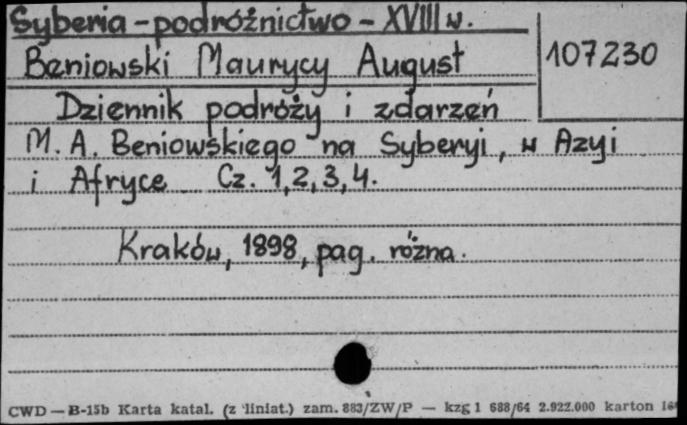 Syberia - podróżnictwo - XVIII w.
Beniowski Maurycy August
107230
Dziennik podróży i zdarzeń
M. A. Beniowskiego na Syberyi, w Azyi
i Afryce Cz. 1, 2, 3, 4.
Kraków, 1898, pag. różna.
CWD — B-15b Karta katal. (z liniat.) zam. 883/ZW/P — kzg 1 688/64 2.922.000 karton